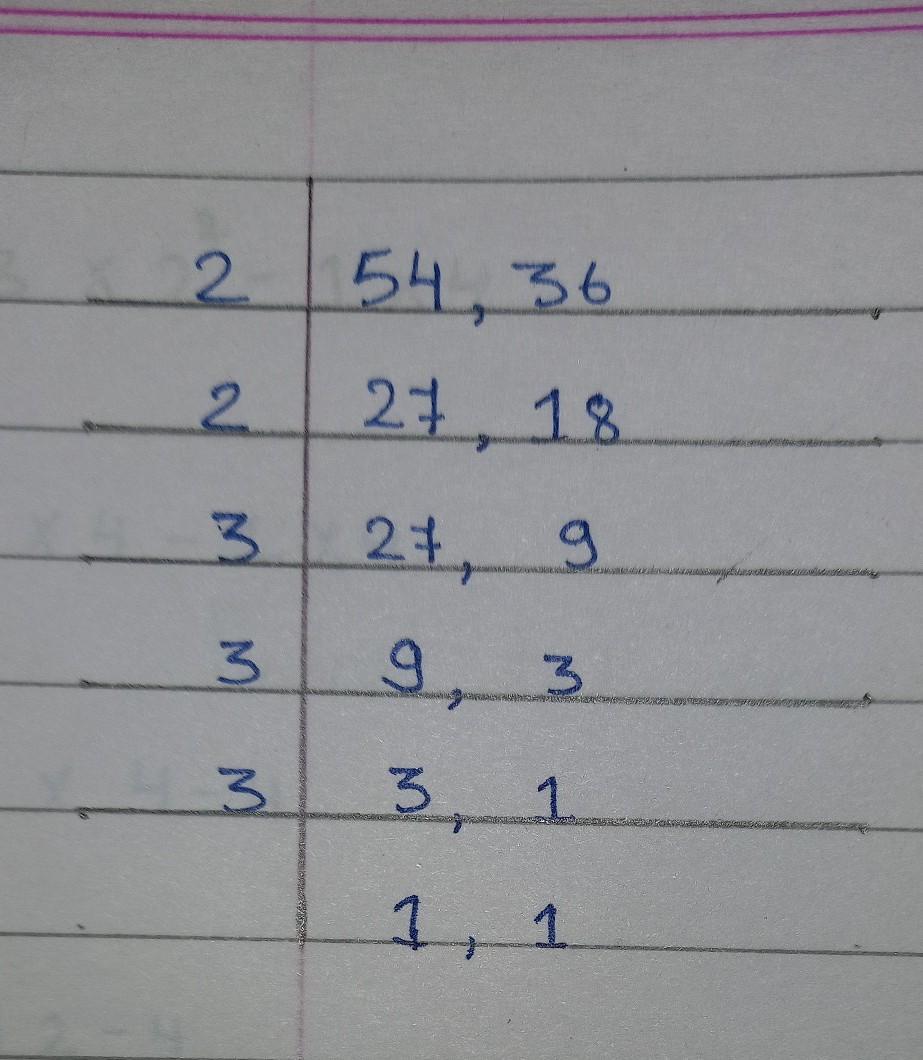 2 54, 36
2 27, 18
3 27, 9
3 9, 3
3 3, 1
1, 1